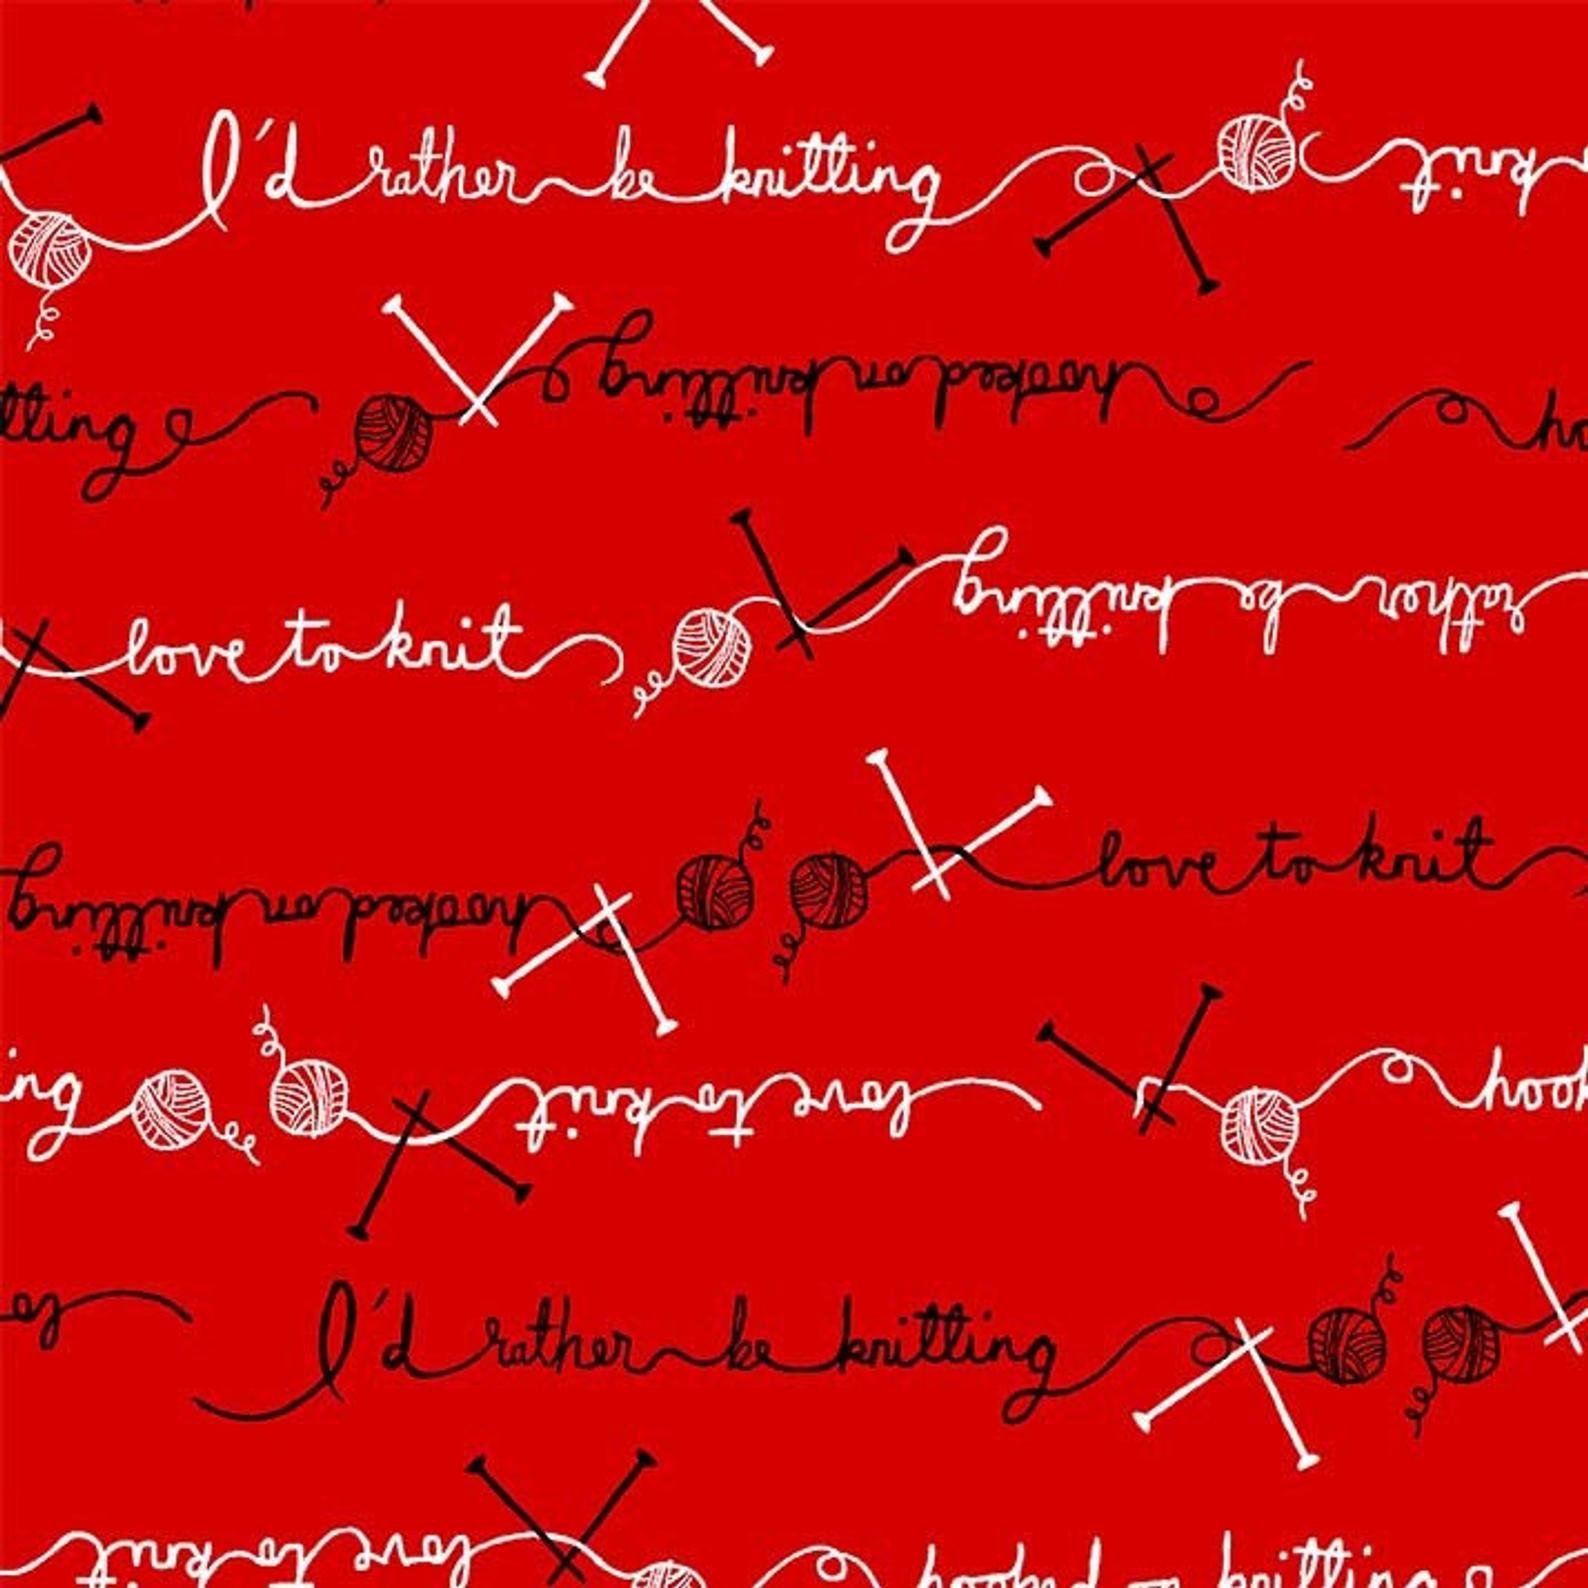 I'd rather be knitting knit
tting hooked on knitting ho
love to knit rather be knitting
hooked on knitting love to knit
ing love to knit hook
lo I'd rather be knitting
love to knit hooked on knitting